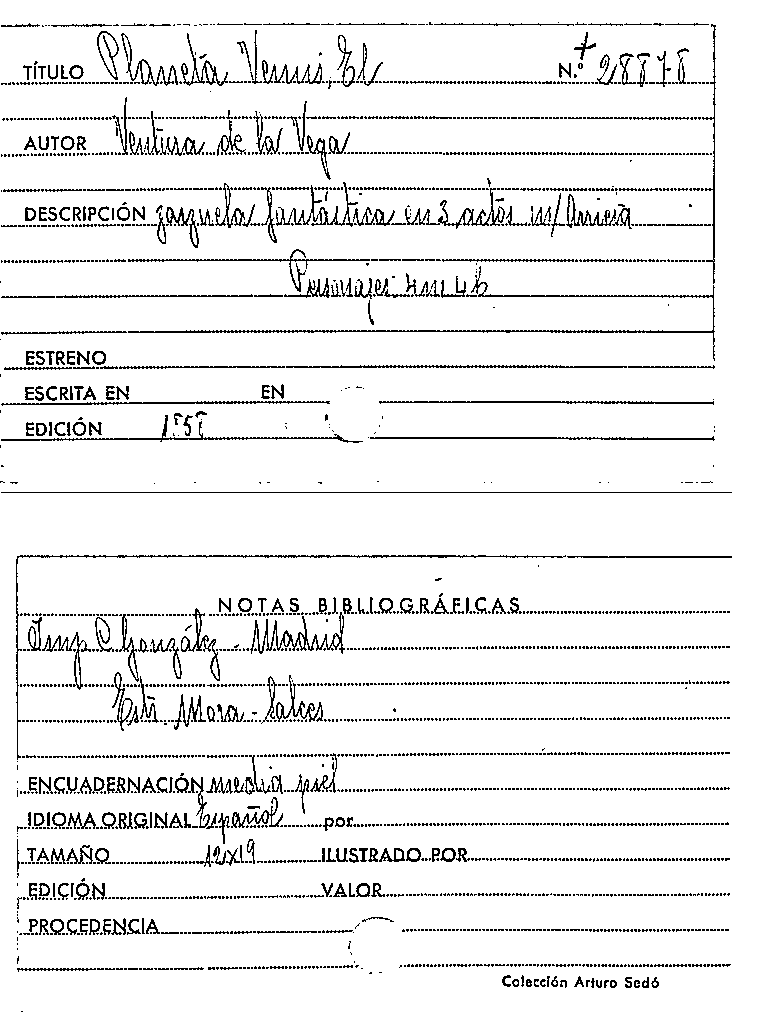 TÍTULO Planeta Venus, El N.º + 28878
AUTOR Ventura de la Vega
DESCRIPCIÓN zarzuela fantástica en 3 actos m/ Arrieta
Personajes 4m 4h
ESTRENO
ESCRITA EN EN
EDICIÓN 1858
NOTAS BIBLIOGRÁFICAS
Imp C González - Madrid
Estr. Mora - Salces
ENCUADERNACIÓN media piel
IDIOMA ORIGINAL Español por
TAMAÑO 12x19 ILUSTRADO POR
EDICIÓN VALOR
PROCEDENCIA
Colección Arturo Sedó